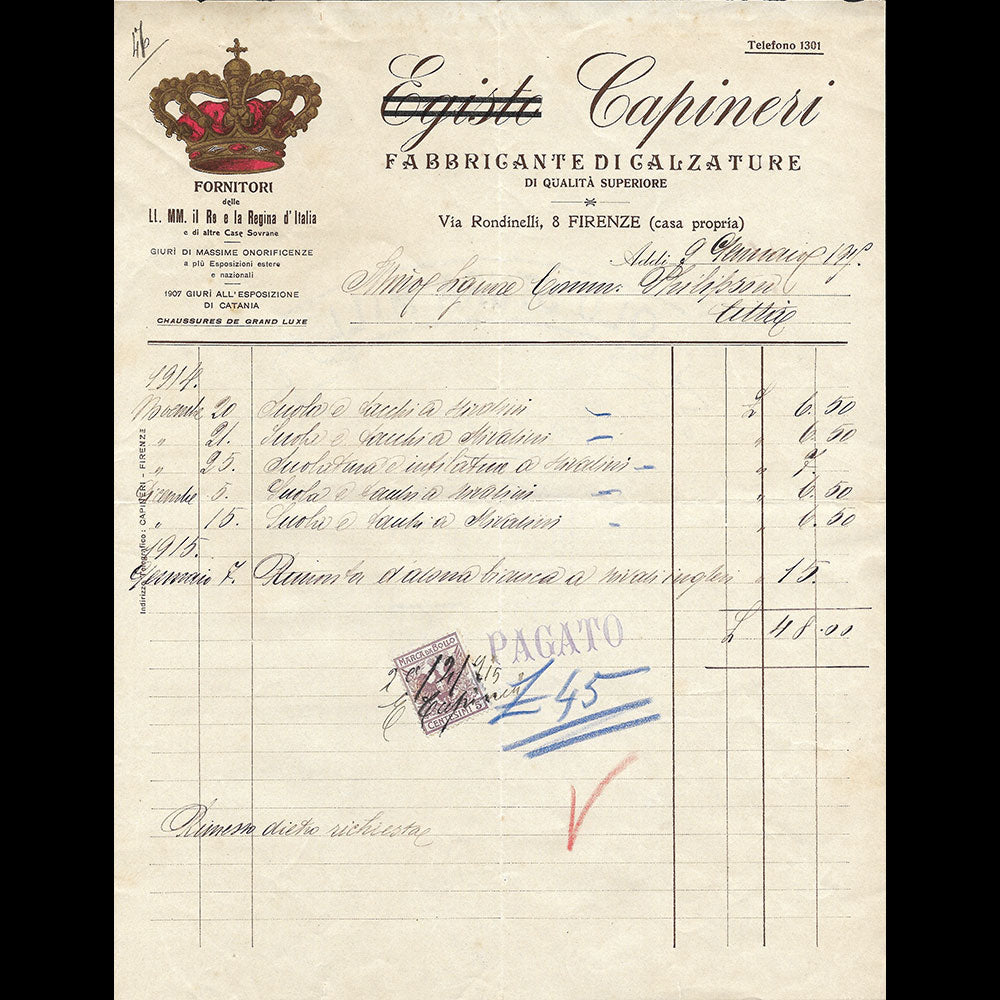 46
Telefono 1301
Egisto Capineri
FABBRICANTE DI CALZATURE
DI QUALITÀ SUPERIORE
Via Rondinelli, 8 FIRENZE (casa propria)
FORNITORI
delle
LL. MM. il Re e la Regina d'Italia
e di altre Case Sovrane
GIURÌ DI MASSIME ONORIFICENZE
a più Esposizioni estere
e nazionali
1907 GIURÌ ALL'ESPOSIZIONE
DI CATANIA
CHAUSSURES DE GRAND LUXE
Addì 9 Gennaio 191
Comm. Philipson
Indirizzo Telegrafico: CAPINERI - FIRENZE
1914.
Novembre 20 Suola e tacchi a stivalini £ 6.50
" 21. Suola e tacchi a stivalini " 6.50
" 25. Suolatura e infilatura a stivalini " 7.
Dicembre 5. Suola e tacchi a stivalini " 6.50
" 15. Suola e tacchi a stivalini " 6.50
1915.
Gennaio 7. Rimonta d'alona bianca a stivali inglesi " 15.
£ 48.00
MARCA DA BOLLO
CENTESIMI 5
E Capineri
PAGATO
£ 45
Rimesso dietro richiesta